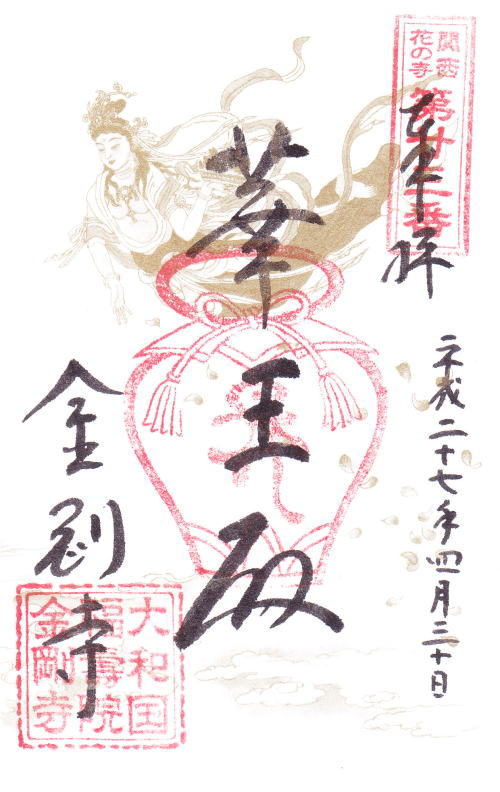 関西
花の寺
第廿三番
奉拝
平成二十七年四月三十日
華王殿
金剛寺
大和国
福壽院
金剛寺